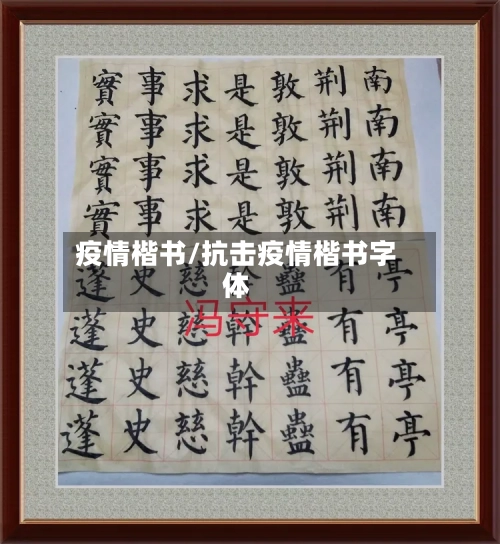 實事求是敦荆南
實事求是敦荆南
實事求是敦荆南
實事求是敦荆南
疫情楷书/抗击疫情楷书字
体
蓬史慈幹蠱有亭
冯守来
蓬史慈幹蠱有亭
蓬史慈幹蠱有亭
蓬史慈幹蠱有亭